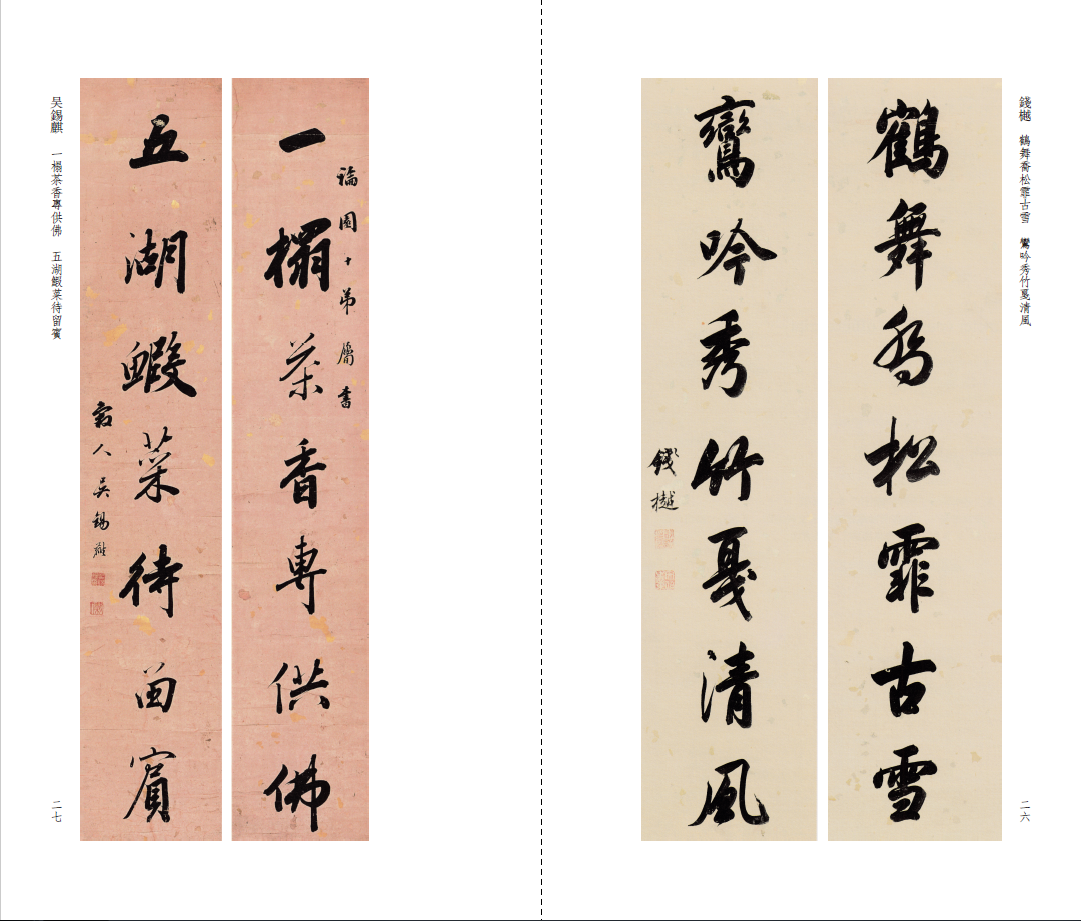 錢樾　鶴舞喬松霏古雪　鸞吟秀竹戛清風
二六
鶴舞喬松霏古雪
鸞吟秀竹戛清風
錢樾
一榻茶香專供佛
五湖鰕菜待留賓
吳錫麒
吳錫麒　一榻茶香專供佛　五湖鰕菜待留賓
二七